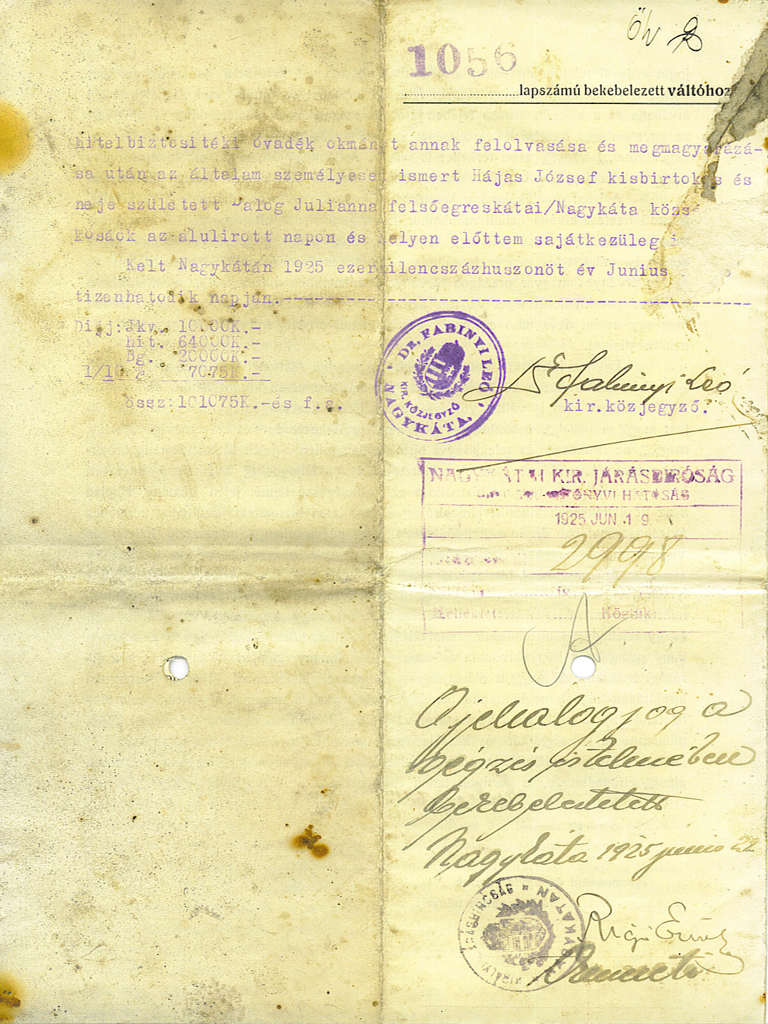 1056
lapszámú bekebelezett váltóhoz
hitelbiztositéki óvadék okmányt annak felolvasása és megmagyarázá-
sa után az általam személyesen ismert Hájas József kisbirtokos és
neje született Balog Julianna felsőegreskátai/Nagykáta közs
lakosok az alulirott napon és helyen előttem sajátkezüleg
Kelt Nagykátán 1925 ezerkilencszázhuszonöt év Junius
tizenhatodik napján.-
Dijj:Jkv. 10.000K.-
Hit. 64000K.-
Bg. 20000K.-
1/10 7075K.-
össz:101075K.-és f.a.
DR. FABINYI LEÓ KIR. KÖZJEGYZŐ NAGYKÁTA.
Dr Fabinyi Leó
kir.közjegyző.
NAGYKÁTAI KIR. JÁRÁSBIRÓSÁG
1925 JUN 19
2998
zálogjog a
végzés értelmében
bekebeleztetett
Nagykáta 1925 junius 22